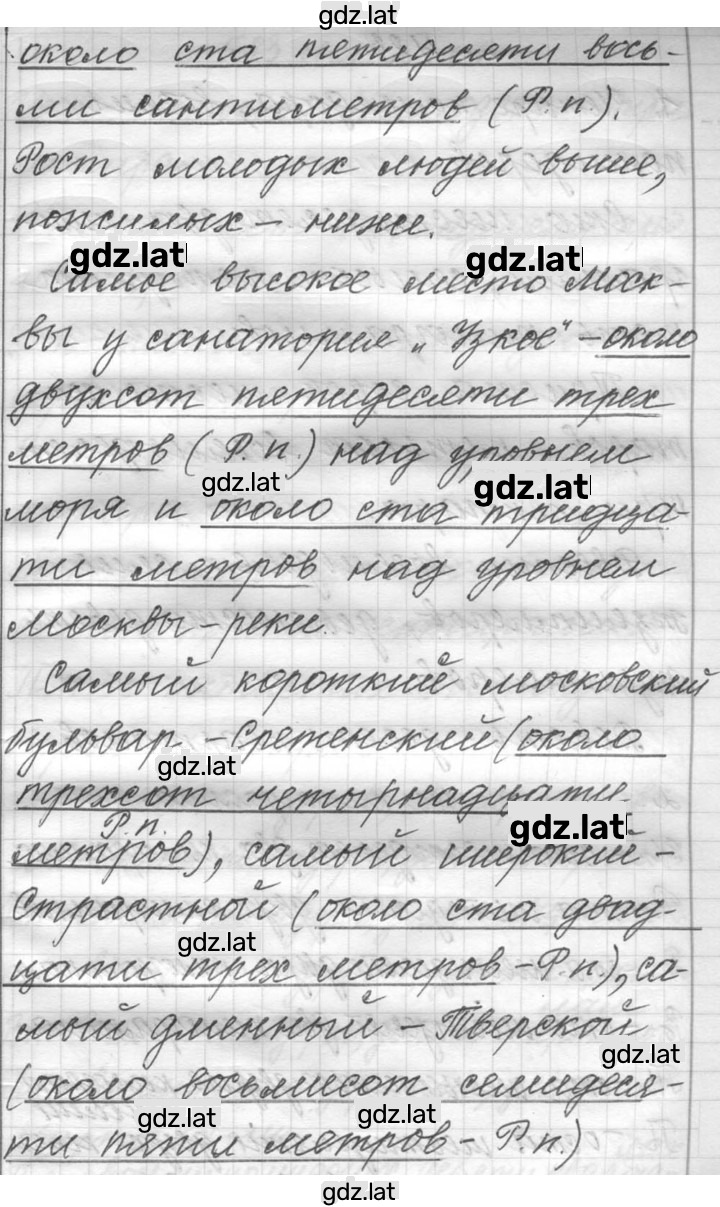 gdz.lat
около ста пятидесяти вось-
ми сантиметров (Р.п.).
Рост молодых людей выше,
пожилых – ниже.
gdz.lat gdz.lat
Самое высокое место Моск-
вы у санатория „Узкое“ – около
двухсот пятидесяти трех
метров (Р.п.) над уровнем
gdz.lat gdz.lat
моря и около ста тридца-
ти метров над уровнем
Москвы-реки.
Самый короткий московский
бульвар – Сретенский (около
gdz.lat
трехсот четырнадцати
Р.п. gdz.lat
метров), самый широкий –
Страстной (около ста двад-
gdz.lat
цати трех метров – Р.п.), са-
мый длинный – Тверской
gdz.lat
(около восьмисот семидеся-
gdz.lat gdz.lat
ти пяти метров – Р.п.)
gdz.lat